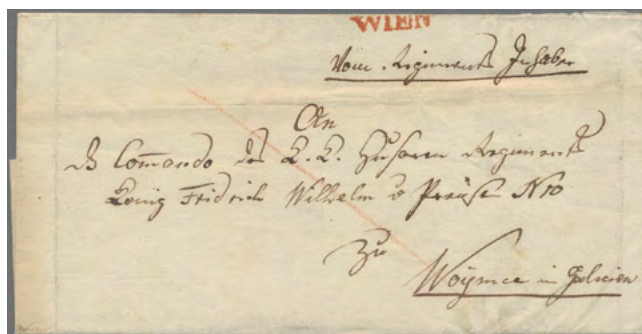 WIEN
Vom Regiments Inhaber
An
ds Com̄ando des K. K. Husaren Regiments
König Fridrich Wilhelm v Preußen N10
Zu
in Galicien